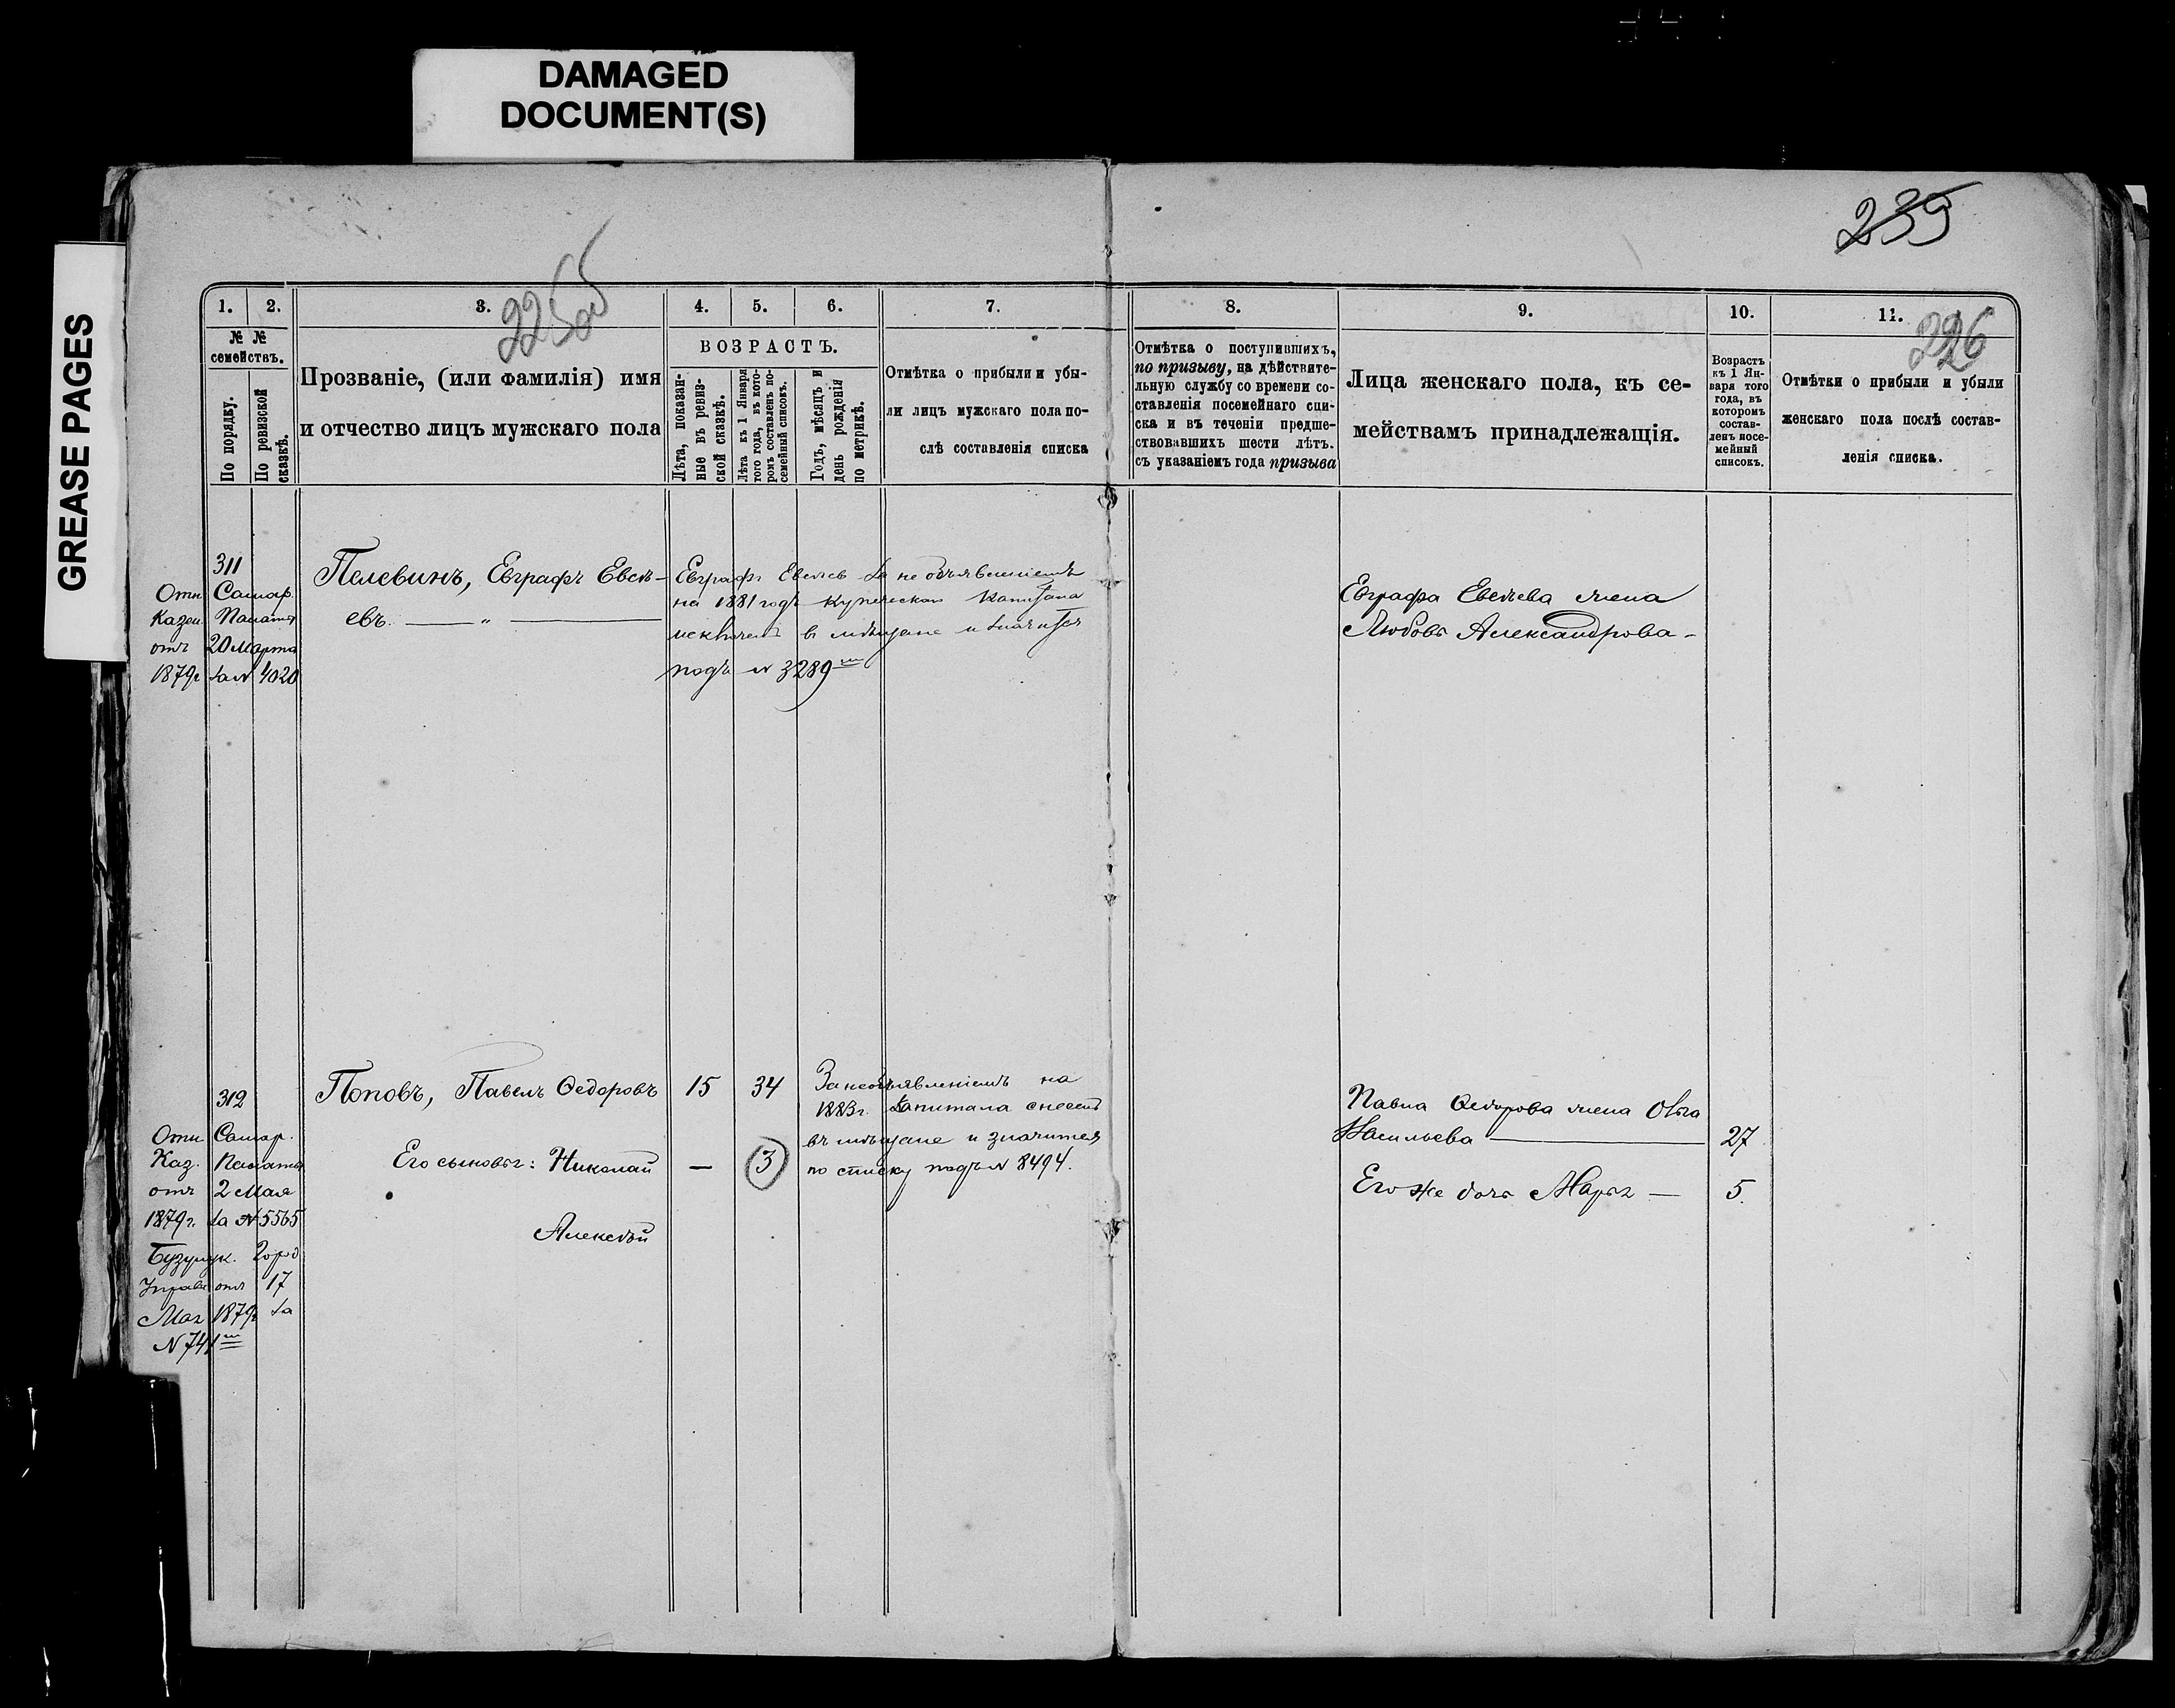 DAMAGED
DOCUMENT(S)
GREASE PAGES
235
226
1.
2.
3.
4.
5.
6.
7.
8.
9.
10.
11.
№ №
семействъ.
По порядку.
По ревизской
сказкѣ.
Прозваніе, (или фамилія) имя
и отчество лицъ мужскаго пола
ВОЗРАСТЪ.
Лѣта, показан-
ные въ ревиз-
ской сказкѣ.
Лѣта къ 1 Января
того года, въ кото-
ромъ составленъ по-
семейный списокъ.
Годъ, мѣсяцъ и
день рожденія
по метрикѣ.
Отмѣтка о прибыли и убы-
ли лицъ мужскаго пола по-
слѣ составленія списка
Отмѣтка о поступившихъ,
по призыву, на дѣйствите-
льную службу со времени со-
ставленія посемейнаго спи-
ска и въ теченіи предше-
ствовавшихъ шести лѣтъ.
съ указаніемъ года призыва
Лица женскаго пола, къ се-
мействамъ принадлежащія.
Возрастъ
къ 1 Ян-
варя того
года, въ
которомъ
состав-
ленъ посе-
мейный
списокъ.
Отмѣтки о прибыли и убыли
женскаго пола послѣ состав-
ленія списка.
311
Отн Самар.
Казен. Палаты
отъ 20 Марта
1879г за № 4020
Пелевинъ, Евграфъ Евсѣ-
евъ. — „ —
Евграфъ Евсѣев за не объявленіемъ
на 1881 годъ купеческаго капитала
исключенъ в мѣщане и значится
подъ № 3289
Евграфа Евсѣева жена
Любовь Александрова -
312
Отн Самар.
Каз. Палаты
отъ 2 Мая
1879г. за № 5565
Бузулук. Город
Управы отъ 17
Мая 1879г за
№ 741
Поповъ, Павелъ Ѳедоровъ 15 34
Его сыновья: Николай — 3
Алексѣй
За необъявленіемъ на
1883г. Капитала снесенъ
въ мѣщане и значится
по списку подъ № 8494.
Павла Ѳедорова жена Ольга
Васильева — 27
Его же дочь Марья — 5.